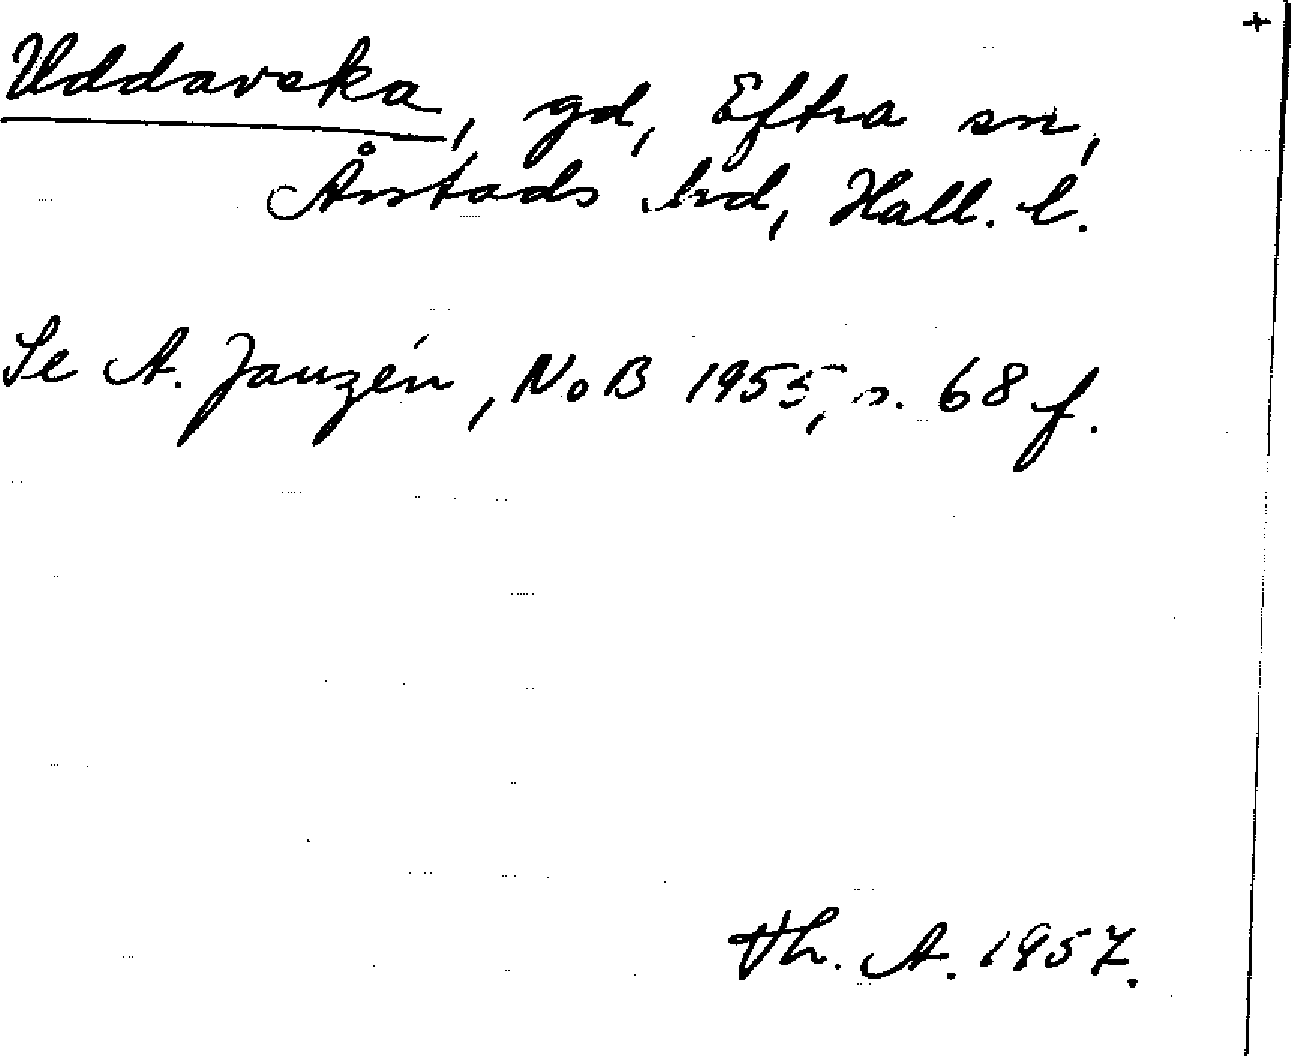 +
Uddavska, gd, Eftra sn,
Årstads hd, Hall. l.
Se A. Janzén, NoB 1955, s. 68 f.
Th. A. 1957.